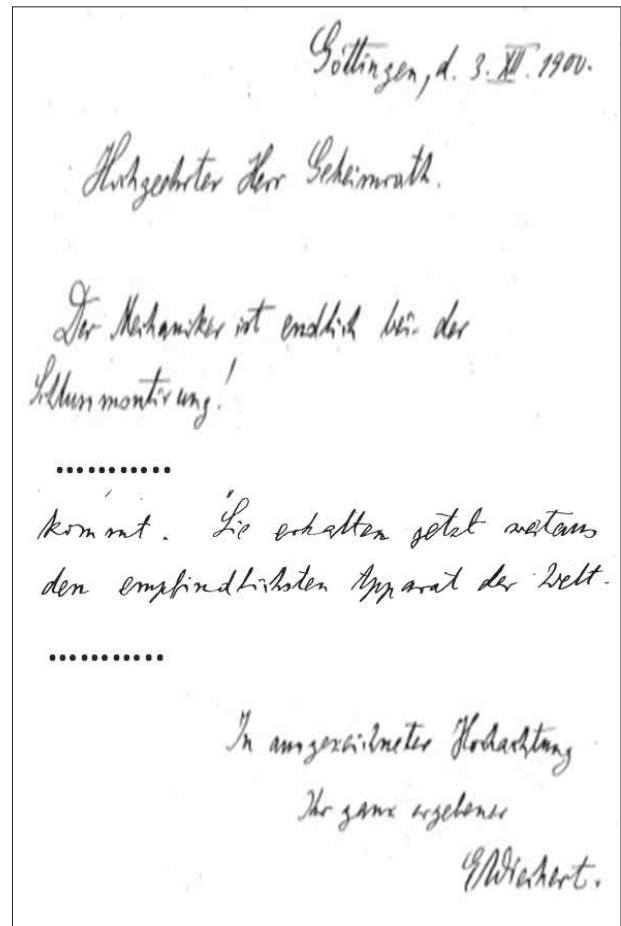 Göttingen, d. 3. XII. 1900.
Hochgeehrter Herr Geheimrath.
Der Mechaniker ist endlich bei der
Schlussmontirung!
...........
kommt. Sie erhalten jetzt weitaus
den empfindlichsten Apparat der Welt.
...........
In ausgezeichneter Hochachtung
Ihr ganz ergebener
E Wiechert.